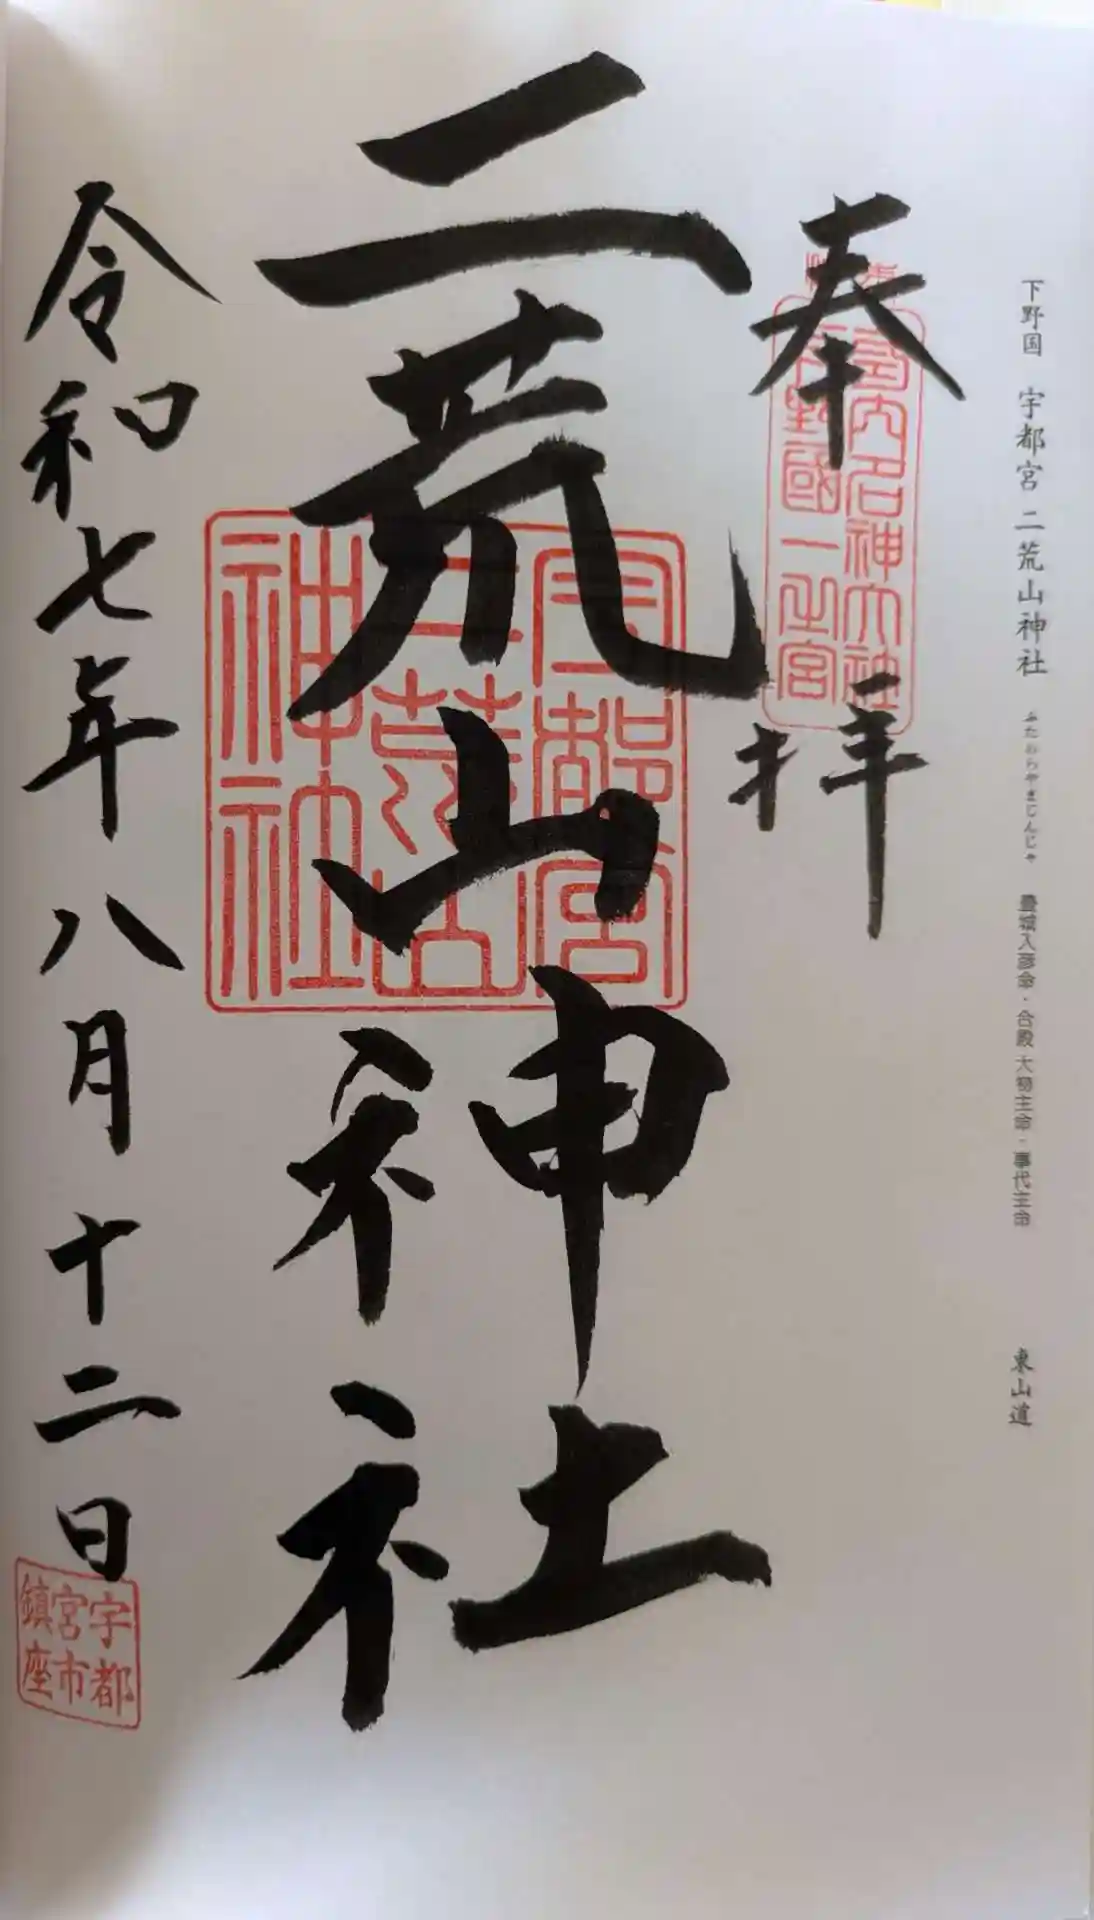 下野国 宇都宮 二荒山神社 ふたあらやまじんじゃ 豊城入彦命・合殿 大物主命・事代主命 東山道
奉拝
名神大社
國一之宮
二荒山神社
宇都宮
二荒山
神社
令和七年八月十二日
宇都
宮市
鎮座